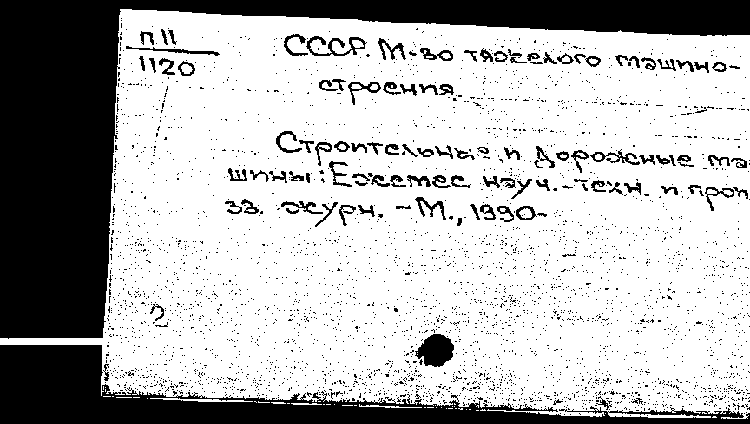 П11
1120
СССР. М-во тяжелого машино-
строения.
Строительные и дорожные ма
шины: Ежемес. науч.-техн. и прои
зв. журн. - М., 1990-
2